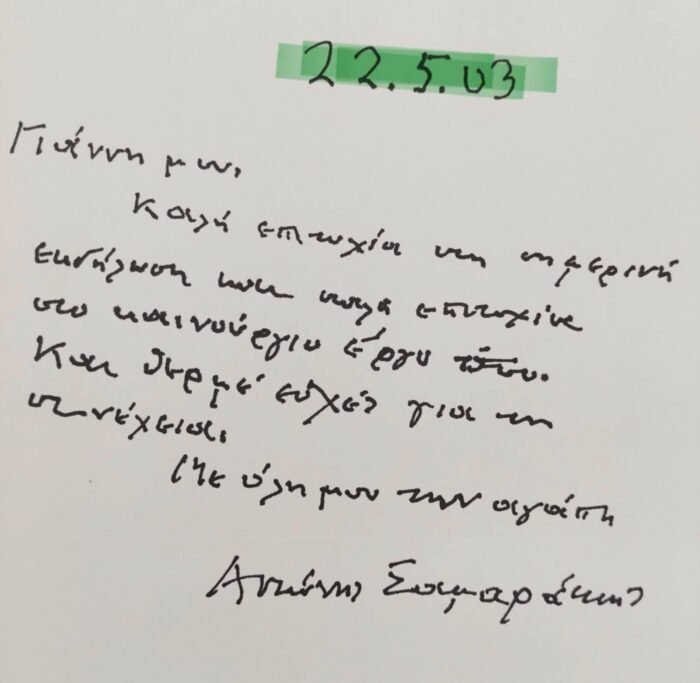 22.5.03
Γιάννη μου,
Καλή επιτυχία στη σημερινή
εκδήλωση και καλή επιτυχία
στο καινούργιο έργο σου.
Και θερμές ευχές για τη
συνέχεια.
Με όλη μου την αγάπη
Αντώνης Σαμαράκης